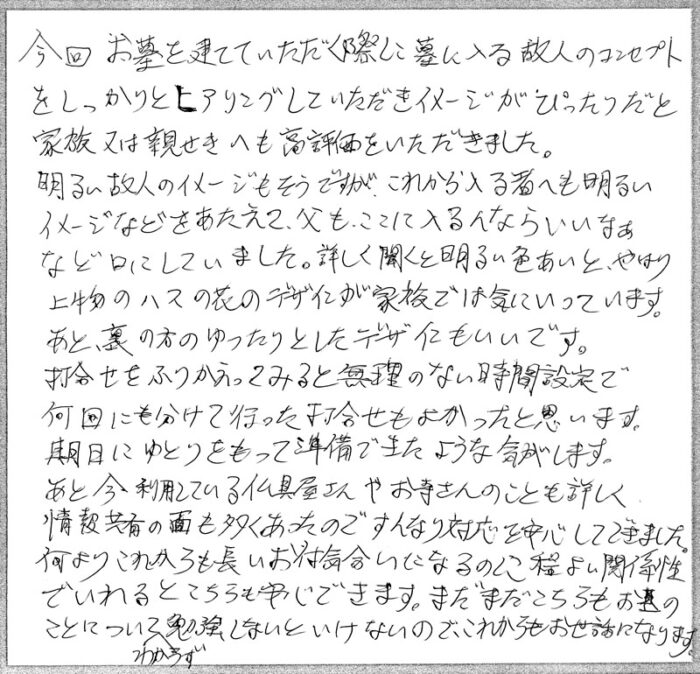 今回 お墓を建てていただく際に墓に入る故人のコンセプト
をしっかりとヒアリングしていただきイメージがぴったりだと
家族又は親せきへも高評価をいただきました。
明るい故人のイメージもそうですが、これから入る者へも明るい
イメージなどをあたえて、父も、ここに入るんならいいなぁ
など口にしていました。詳しく聞くと明るい色あいと、やはり
上物のハスの花のデザインが家族では気にいっています。
あと、裏の方のゆったりとしたデザインもいいです。
打合せをふりかえってみると無理のない時間設定で
何回にも分けて行った打合せもよかったと思います。
期日にゆとりをもって準備できたような気がします。
あと今、利用している仏具屋さんやお寺さんのことも詳しく
情報共有の面も多くあったのですんなり対応を安心してできました。
何よりこれからも長いお付気合いになるのに程よい関係性
でいれるとこちらも安心できます。まだまだこちらもお墓の
ことについてわからず勉強しないといけないので、これからもお世話になります。